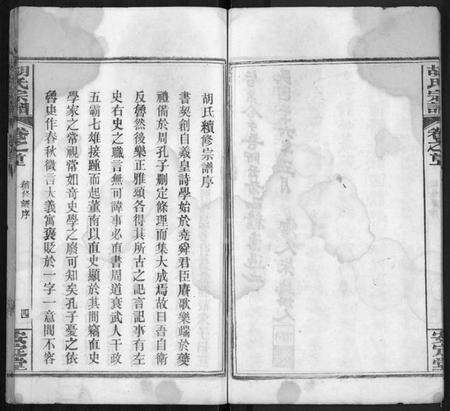 胡氏續修宗譜序
書契創自羲皇詩學始於堯舜君臣賡歌樂端於夔
禮備於周孔子刪定條理而集大成焉故曰吾自衛
反魯然後樂正雅頌各得其所古之記言記事有左
史右史之職言無可諱事必直書周道衰武人干政
五霸七雄接踵而起董南以直史顯於其間竊直史
學家之常視常如奇史學之廢可知矣孔子憂之依
魯史作春秋微言大義寓褒貶於一字一意閒不容
胡氏宗譜
卷之首
續修譜序
四
安定堂
胡氏宗譜
卷之首
安定堂